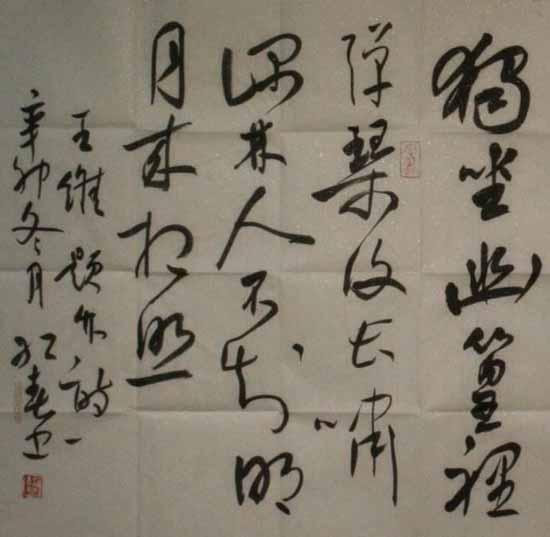 獨坐幽篁裡
彈琴復長嘯
深林人不知明
月來相照
王維題竹詩一
辛卯冬月春